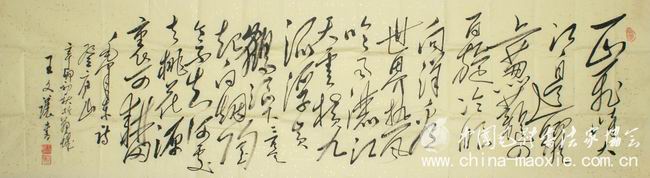 一山飛峙大
江邊躍
上葱蘢四
百旋冷眼
向洋看
世界热風
吹雨洒江
天雲横九
派浮黄
鶴浪下三吴
起白烟陶
令不知何處
去桃花源
裏可耕田
毛泽東詩
登庐山
辛卯初秋於
王文書
中国毛体书法家协会
www.china-maoxie.com.cn